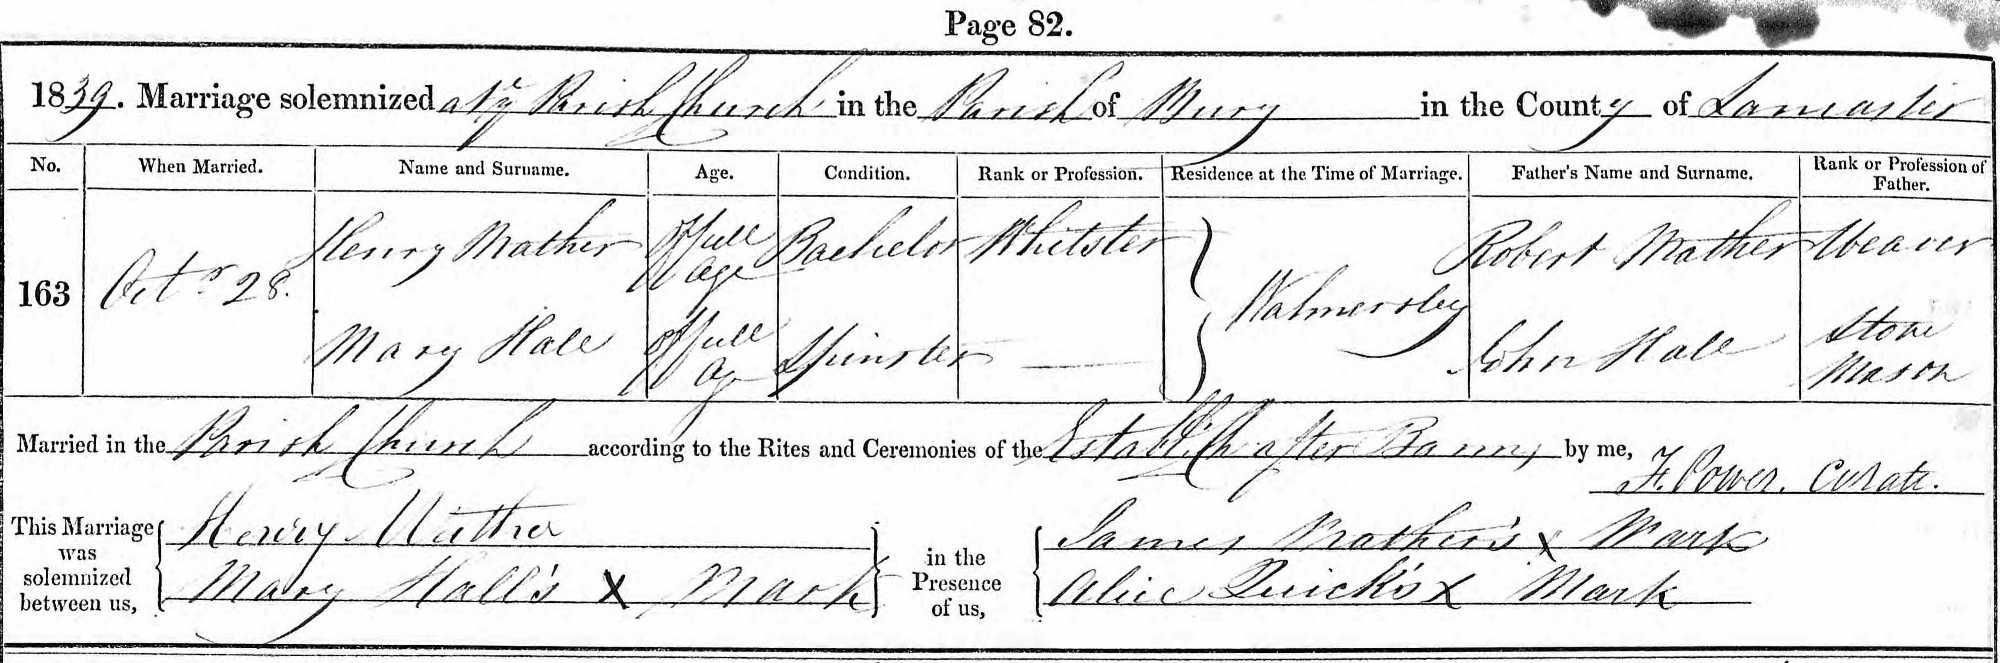 Page 82.
1839. Marriage solemnized at ye Parish Church in the Parish of Bury in the County of Lancaster
No. When Married. Name and Surname. Age. Condition. Rank or Profession. Residence at the Time of Marriage. Father's Name and Surname. Rank or Profession of Father.
163 Octr 28. Henry Mather Of full age Bachelor Whitster Walmersley Robert Mather Weaver
Mary Hall Of full Age Spinster — John Hall Stone Mason
Married in the Parish Church according to the Rites and Ceremonies of the Establd Ch after Banns by me, F. Power. Curate.
This Marriage was solemnized between us, Henry Mather in the Presence of us, James Mather's x Mark
Mary Hall's X Mark Alice Quick's x Mark